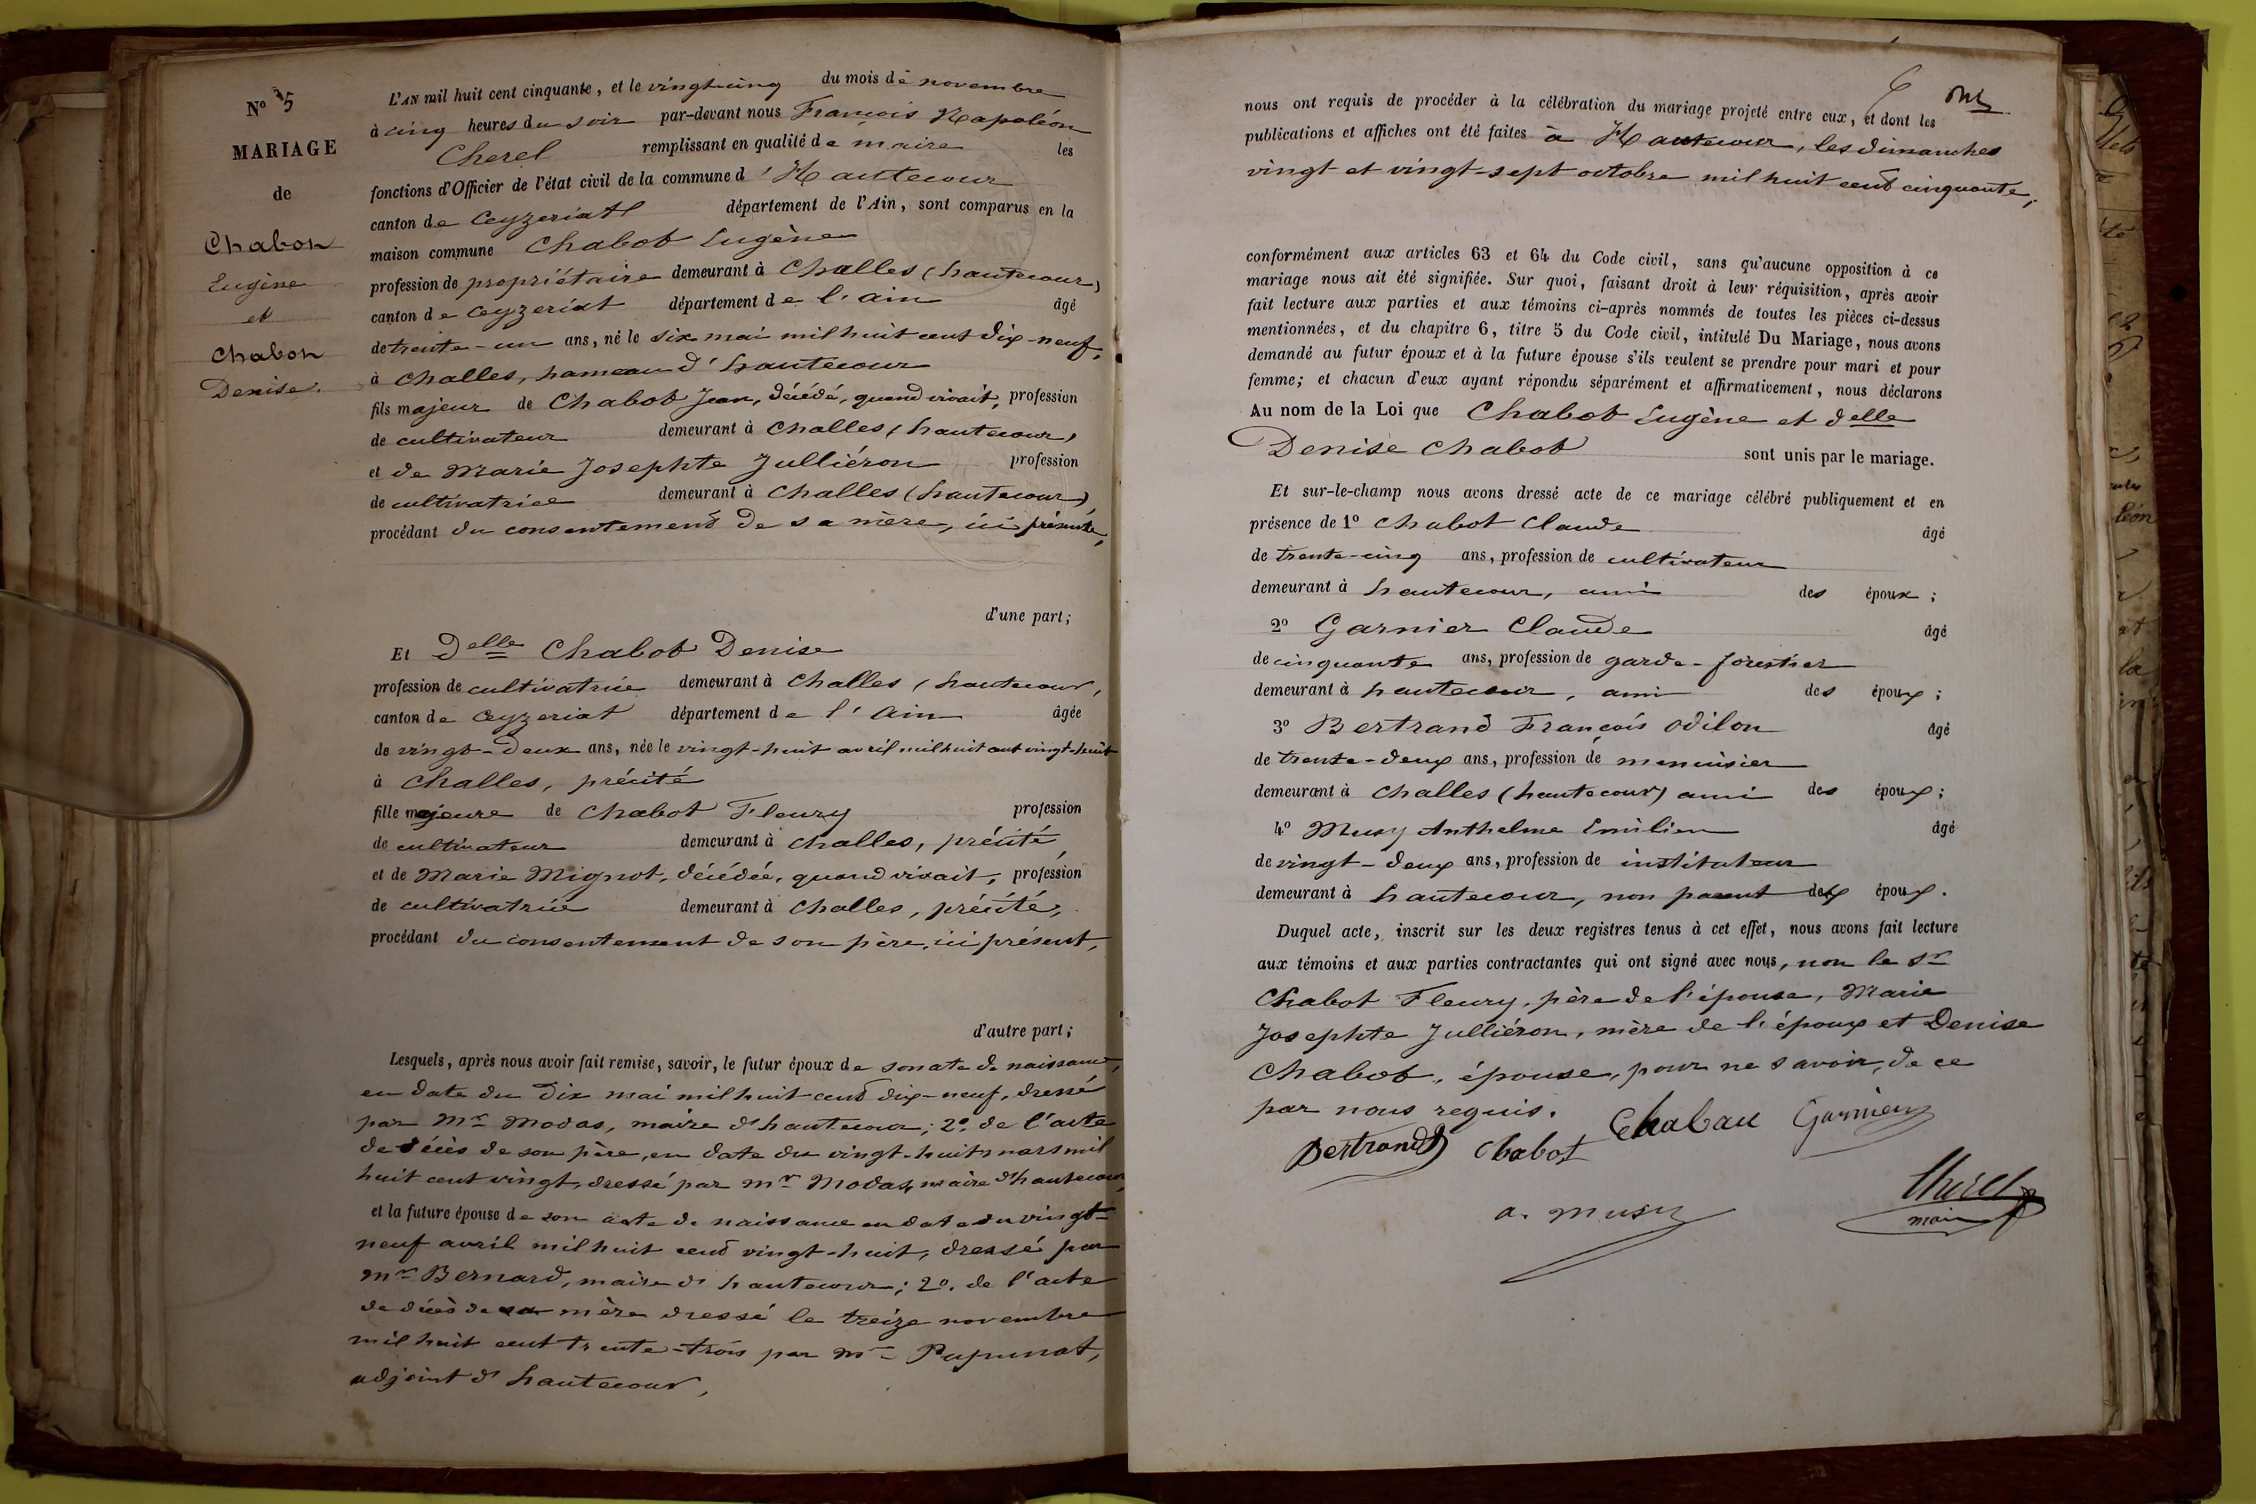 N° 5
MARIAGE
de
Chabon
Eugène
et
Chabon
Denise.
L'AN mil huit cent cinquante, et le vingt-cinq du mois de novembre
à cinq heures du soir par-devant nous François Napoléon
Cherel remplissant en qualité de maire les
fonctions d'Officier de l'état civil de la commune d'Hautecour
canton de Ceyzeriat département de l'Ain, sont comparus en la
maison commune Chabot Eugène
profession de propriétaire demeurant à Challes (hautecour)
canton de Ceyzeriat département de l'ain âgé
de trente-un ans, né le six mai mil huit cent dix-neuf,
à Challes, hameau d'hautecour
fils majeur de Chabot Jean, décédé, quand vivait, profession
de cultivateur demeurant à Challes (hautecour)
et de Marie Josephte Julliéron profession
de cultivatrice demeurant à Challes (hautecour),
procédant du consentement de sa mère, ici présente,
d'une part;
Et Delle Chabot Denise
profession de cultivatrice demeurant à Challes (hautecour,
canton de Ceyzeriat département de l'Ain âgée
de vingt-deux ans, née le vingt-huit avril mil huit cent vingt-huit
à Challes, précité
fille majeure de Chabot Fleury profession
de cultivateur demeurant à Challes, précité,
et de Marie Mignot, décédée, quand vivait, profession
de cultivatrice demeurant à Challes, précité,
procédant du consentement de son père, ici présent,
d'autre part;
Lesquels, après nous avoir fait remise, savoir, le futur époux de son acte de naissance,
en date du Dix mai mil huit cent dix-neuf, dressé
par Mr Modas, maire d'hautecour; 2° de l'acte
de décès de son père, en date du vingt-huit mars mil
huit cent vingt, dressé par Mr Modas, maire d'hautecour,
et la future épouse de son acte de naissance en date du vingt-
neuf avril mil huit cent vingt-huit, dressé par
Mr Bernard, maire d'hautecour; 2°. de l'acte
de décès de sa mère dressé le treize novembre
mil huit cent trente-trois par Mr
adjoint d'hautecour,
nous ont requis de procéder à la célébration du mariage projeté entre eux, et dont les
publications et affiches ont été faites à Hautecour, les dimanches
vingt et vingt-sept octobre mil huit cent cinquante,
conformément aux articles 63 et 64 du Code civil, sans qu'aucune opposition à ce
mariage nous ait été signifiée. Sur quoi, faisant droit à leur réquisition, après avoir
fait lecture aux parties et aux témoins ci-après nommés de toutes les pièces ci-dessus
mentionnées, et du chapitre 6, titre 5 du Code civil, intitulé Du Mariage, nous avons
demandé au futur époux et à la future épouse s'ils veulent se prendre pour mari et pour
femme; et chacun d'eux ayant répondu séparément et affirmativement, nous déclarons
Au nom de la Loi que Chabot Eugène et delle
Denise Chabot sont unis par le mariage.
Et sur-le-champ nous avons dressé acte de ce mariage célébré publiquement et en
présence de 1° Chabot Claude âgé
de trente-cinq ans, profession de cultivateur
demeurant à hautecour, ami des époux;
2° Garnier Claude âgé
de cinquante ans, profession de garde-forestier
demeurant à hautecour, ami des époux;
3° Bertrand François Odilon âgé
de trente-deux ans, profession de menuisier
demeurant à Challes (hautecour) ami des époux;
4° Musy Anthelme Emilien âgé
de vingt-deux ans, profession de instituteur
demeurant à hautecour, non parent des époux.
Duquel acte, inscrit sur les deux registres tenus à cet effet, nous avons fait lecture
aux témoins et aux parties contractantes qui ont signé avec nous, non le Sr
Chabot Fleury, père de l'épouse, Marie
Josephte Julliéron, mère de l'époux et Denise
Chabot, épouse, pour ne savoir, de ce
par nous requis.
Bertrand Chabot Chabau Garnier
a. musy
Cherel
maire